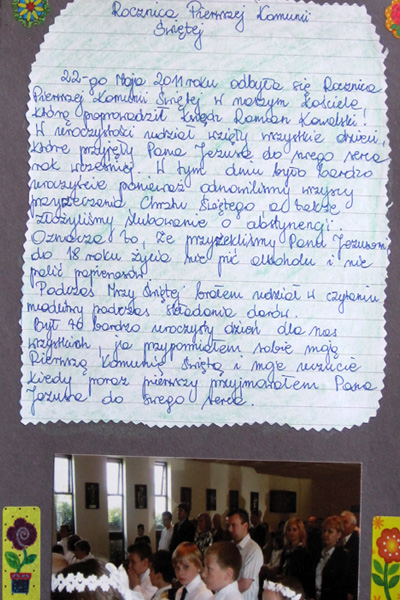 Rocznica Pierwszej Komunii
Świętej
22-go Maja 2011 roku odbyła się Rocznica
Pierwszej Komunii Świętej w naszym kościele
którą poprowadził Ksiądz Roman Kowalski!
W uroczystości udział wzięły wszystkie dzieci,
które przyjęły Pana Jezusa do swego serca
rok wcześniej. W tym dniu było bardzo
uroczyście ponieważ odnowiliśmy wszyscy
przyrzeczenia Chrztu Świętego a także
złożyliśmy ślubowanie o abstynencji.
Oznacza to, że przyrzekliśmy Panu Jezusowi
do 18 roku życia nie pić alkoholu i nie
palić papierosów.
Podczas Mszy Świętej brałem udział w czytaniu
modlitwy podczas składania darów.
Był to bardzo uroczysty dzień dla nas
wszystkich, ja przypomniałem sobie moją
Pierwszą Komunię Świętą i moje uczucie
kiedy poraz pierwszy przyjmowałem Pana
Jezusa do swego serca.